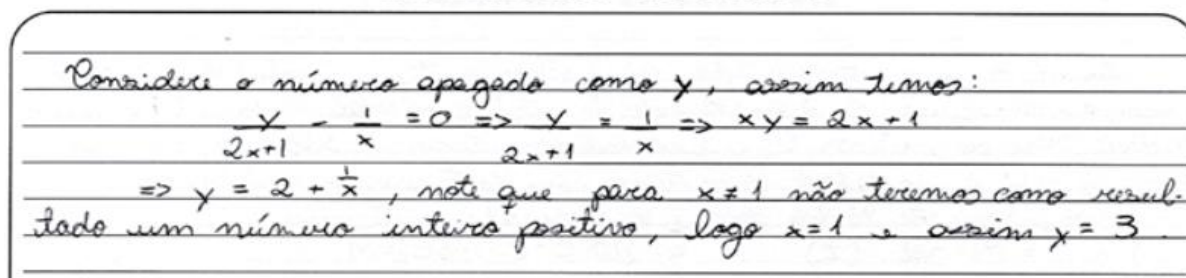 Considere o número apagado como y, assim temos:
y/(2x+1) - 1/x = 0 => y/(2x+1) = 1/x => xy = 2x+1
=> y = 2 + 1/x, note que para x ≠ 1 não teremos como resul-
tado um número inteiro positivo, logo x=1 e assim y = 3.